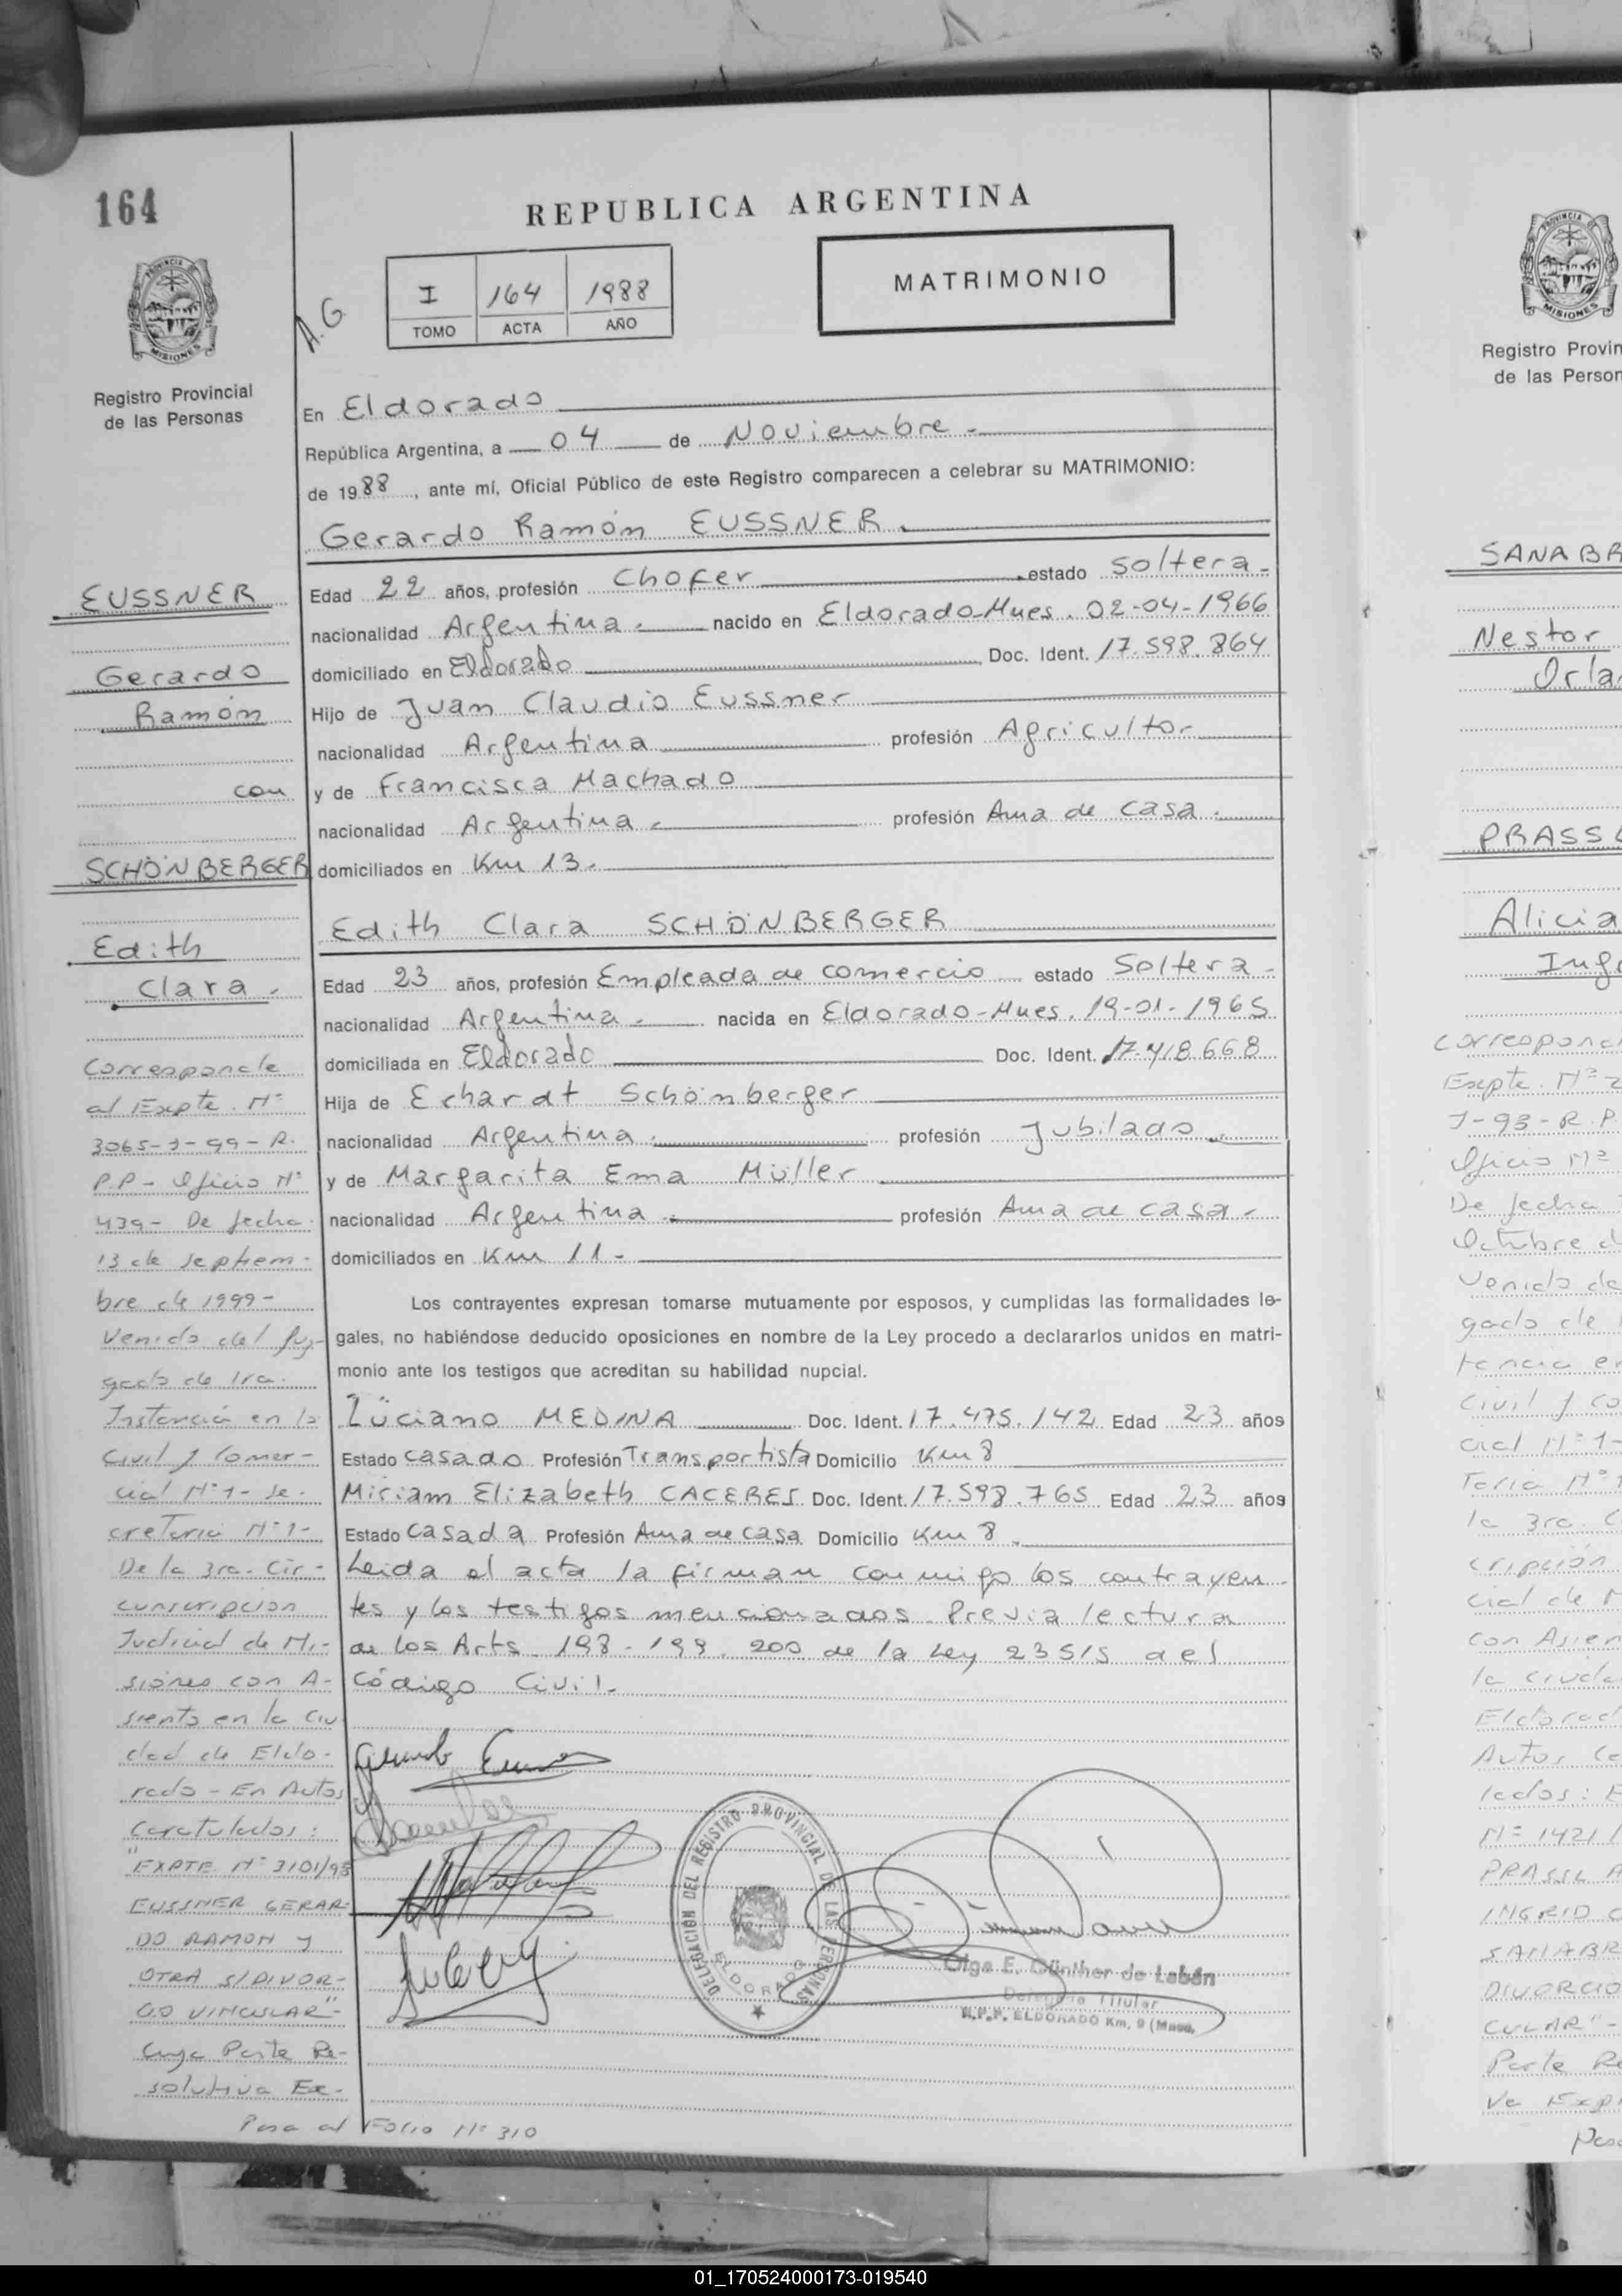 164
PROVINCIA DE
MISIONES
Registro Provincial
de las Personas
REPUBLICA ARGENTINA
A.G
I 164 1988
TOMO ACTA AÑO
MATRIMONIO
En Eldorado
República Argentina, a 04 de Noviembre.-
de 1988, ante mí, Oficial Público de este Registro comparecen a celebrar su MATRIMONIO:
Gerardo Ramón EUSSNER.
Edad 22 años, profesión Chofer estado soltera.
nacionalidad Argentina. nacido en Eldorado-Mnes. 02-04-1966
domiciliado en Eldorado Doc. Ident. 17.598.864
Hijo de Juan Claudio Eussner
nacionalidad Argentina profesión Agricultor
y de Francisca Machado
nacionalidad Argentina.- profesión Ama de casa.
domiciliados en Km 13.-
Edith Clara SCHÖNBERGER
Edad 23 años, profesión Empleada de comercio estado Soltera-
nacionalidad Argentina.- nacida en Eldorado-Mnes. 19-01-1965
domiciliada en Eldorado Doc. Ident. 17.418.668
Hija de Echardt Schönberger
nacionalidad Argentina. profesión Jubilado.
y de Margarita Ema Müller
nacionalidad Argentina.- profesión Ama de casa.-
domiciliados en Km 11-
Los contrayentes expresan tomarse mutuamente por esposos, y cumplidas las formalidades le-
gales, no habiéndose deducido oposiciones en nombre de la Ley procedo a declararlos unidos en matri-
monio ante los testigos que acreditan su habilidad nupcial.
Lüciano MEDINA Doc. Ident. 17.475.142 Edad 23 años
Estado casado Profesión Transportista Domicilio Km 8
Miriam Elizabeth CACERES Doc. Ident. 17.598.765 Edad 23 años
Estado Casada Profesión Ama de casa Domicilio Km 8.
Leida el acta la firman conmigo los contrayen-
tes y los testigos mencionados. Previa lectura
de los Arts. 198-199.200 de la Ley 23515 del
Código Civil.-
DELEGACIÓN DEL REGISTRO PROVINCIAL DE LAS PERSONAS
ELDORADO
Olga E. Günther de Labán
Delegada Titular
R.P.P. ELDORADO Km. 9 (Mnes.
EUSSNER
Gerardo
Ramón
con
SCHÖNBERGER
Edith
Clara.
Corresponde
al Expte. N°
3065-J-99-R.
P.P- Oficio N°
439- De fecha
13 de septiem-
bre de 1999-
Venido del Juz-
gado de 1ra.
Instancia en lo
Civil y Comer-
cial N°1- Se-
cretaria N°1-
De la 3ra. Cir-
cunscripcion
Judicial de Mi-
siones con A-
siento en la Ciu
dad de Eldo-
rado - En Autos
Caratulados:
"EXPTE. N° 3101/98
EUSSNER GERAR-
DO RAMON y
OTRA S/DIVOR-
CIO VINCULAR"-
Cuya Parte Re-
solutiva Ex-
Pasa al Folio N° 310
PROVINCIA DE
MISIONES
Registro Provin
de las Person
SANABR
Nestor
Orla
PRASS
Alicia
Ing
correspond
Expte. N°
J-93-R.P.
Oficio N°
De fecha
Octubre d
Venido de
gado de
tancia e
Civil y co
cial N°1-
Taria N°
la 3ra. C
cripción
cial de M
con Asien
la ciuda
Eldorad
Autos Ca
lados: E
N° 1421/
PRASSL A
INGRID C
SANABR
DIVORCIO
CULAR"-
Parte Re
va Exp
Pas
01_170524000173-019540